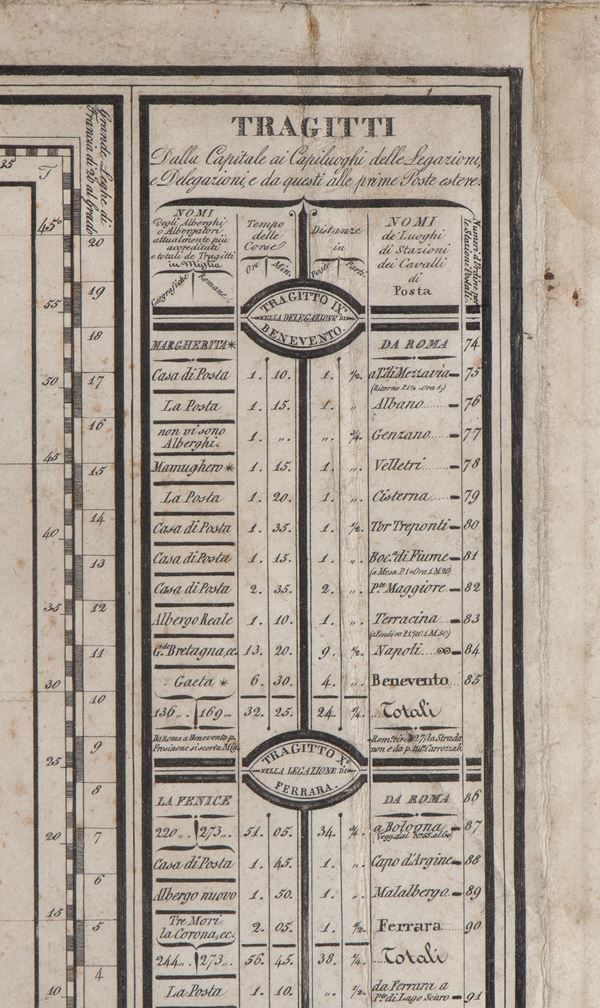 TRAGITTI
Dalla Capitale ai Capiluoghi delle Legazioni,
e Delegazioni, e da questi alle prime Poste estere.
Grande Leghe di
Francia di 25 al Grado
NOMI
degli Alberghi
o Albergatori
attualmente più
accreditati
e totali de Tragitti
in Miglia
Geografiche Romane
Tempo
delle
Corse
Ore Min.
Distanze
in
Poste Parti
NOMI
de' Luoghi
di Stazioni
dei Cavalli
di
Posta
Numeri d'Ordine per
le Stazioni Postali.
TRAGITTO IX°
NELLA DELEGAZIONE DI
BENEVENTO.
MARGHERITA* DA ROMA 74
Casa di Posta 1. 10. 1. ½. a T. di Mezzavia 75
La Posta 1. 15. 1. „ Albano 76
non vi sono
Alberghi. 1. „. „. ¾. Genzano 77
Mamughero * 1. 15. 1. „. Velletri 78
La Posta 1. 20. 1. „. Cisterna 79
Casa di Posta 1. 35. 1. ½. Tor Treponti 80
Casa di Posta 1. 15. 1. „. Boc.ª di Fiume 81
Casa di Posta 2. 35. 2. „. P.te Maggiore 82
Albergo Reale 1. 10. 1. „. Terracina 83
G.de Bretagna, ec. 13. 20. 9. ½. Napoli 84
Gaeta * 6. 30. 4. „. Benevento 85
136 „. 169 „. 32. 25. 24. ¼. Totali
Da Roma a Benevento p.
Frosinone si scorta Mig.
la Strada
TRAGITTO X°
NELLA LEGAZIONE DI
FERRARA.
LA FENICE DA ROMA 86
220 „. 273 „. 51. 05. 34. ¾. a Bologna 87
Casa di Posta 1. 45. 1. „. Capo d'Argine 88
Albergo nuovo 1. 50. 1. „. Malalbergo 89
Tre Mori
la Corona, ec. 2. 05. 1. ½. Ferrara 90
244 „. 273 „. 56. 45. 38. ¼. Totali
La Posta 1. 10. „. ½. da Ferrara a
P.te di Lago Scuro 91
45°
55
50
45
40
35
30
25
20
15
10
20
19
18
17
16
15
14
13
12
11
10
9
8
7
6
5
4